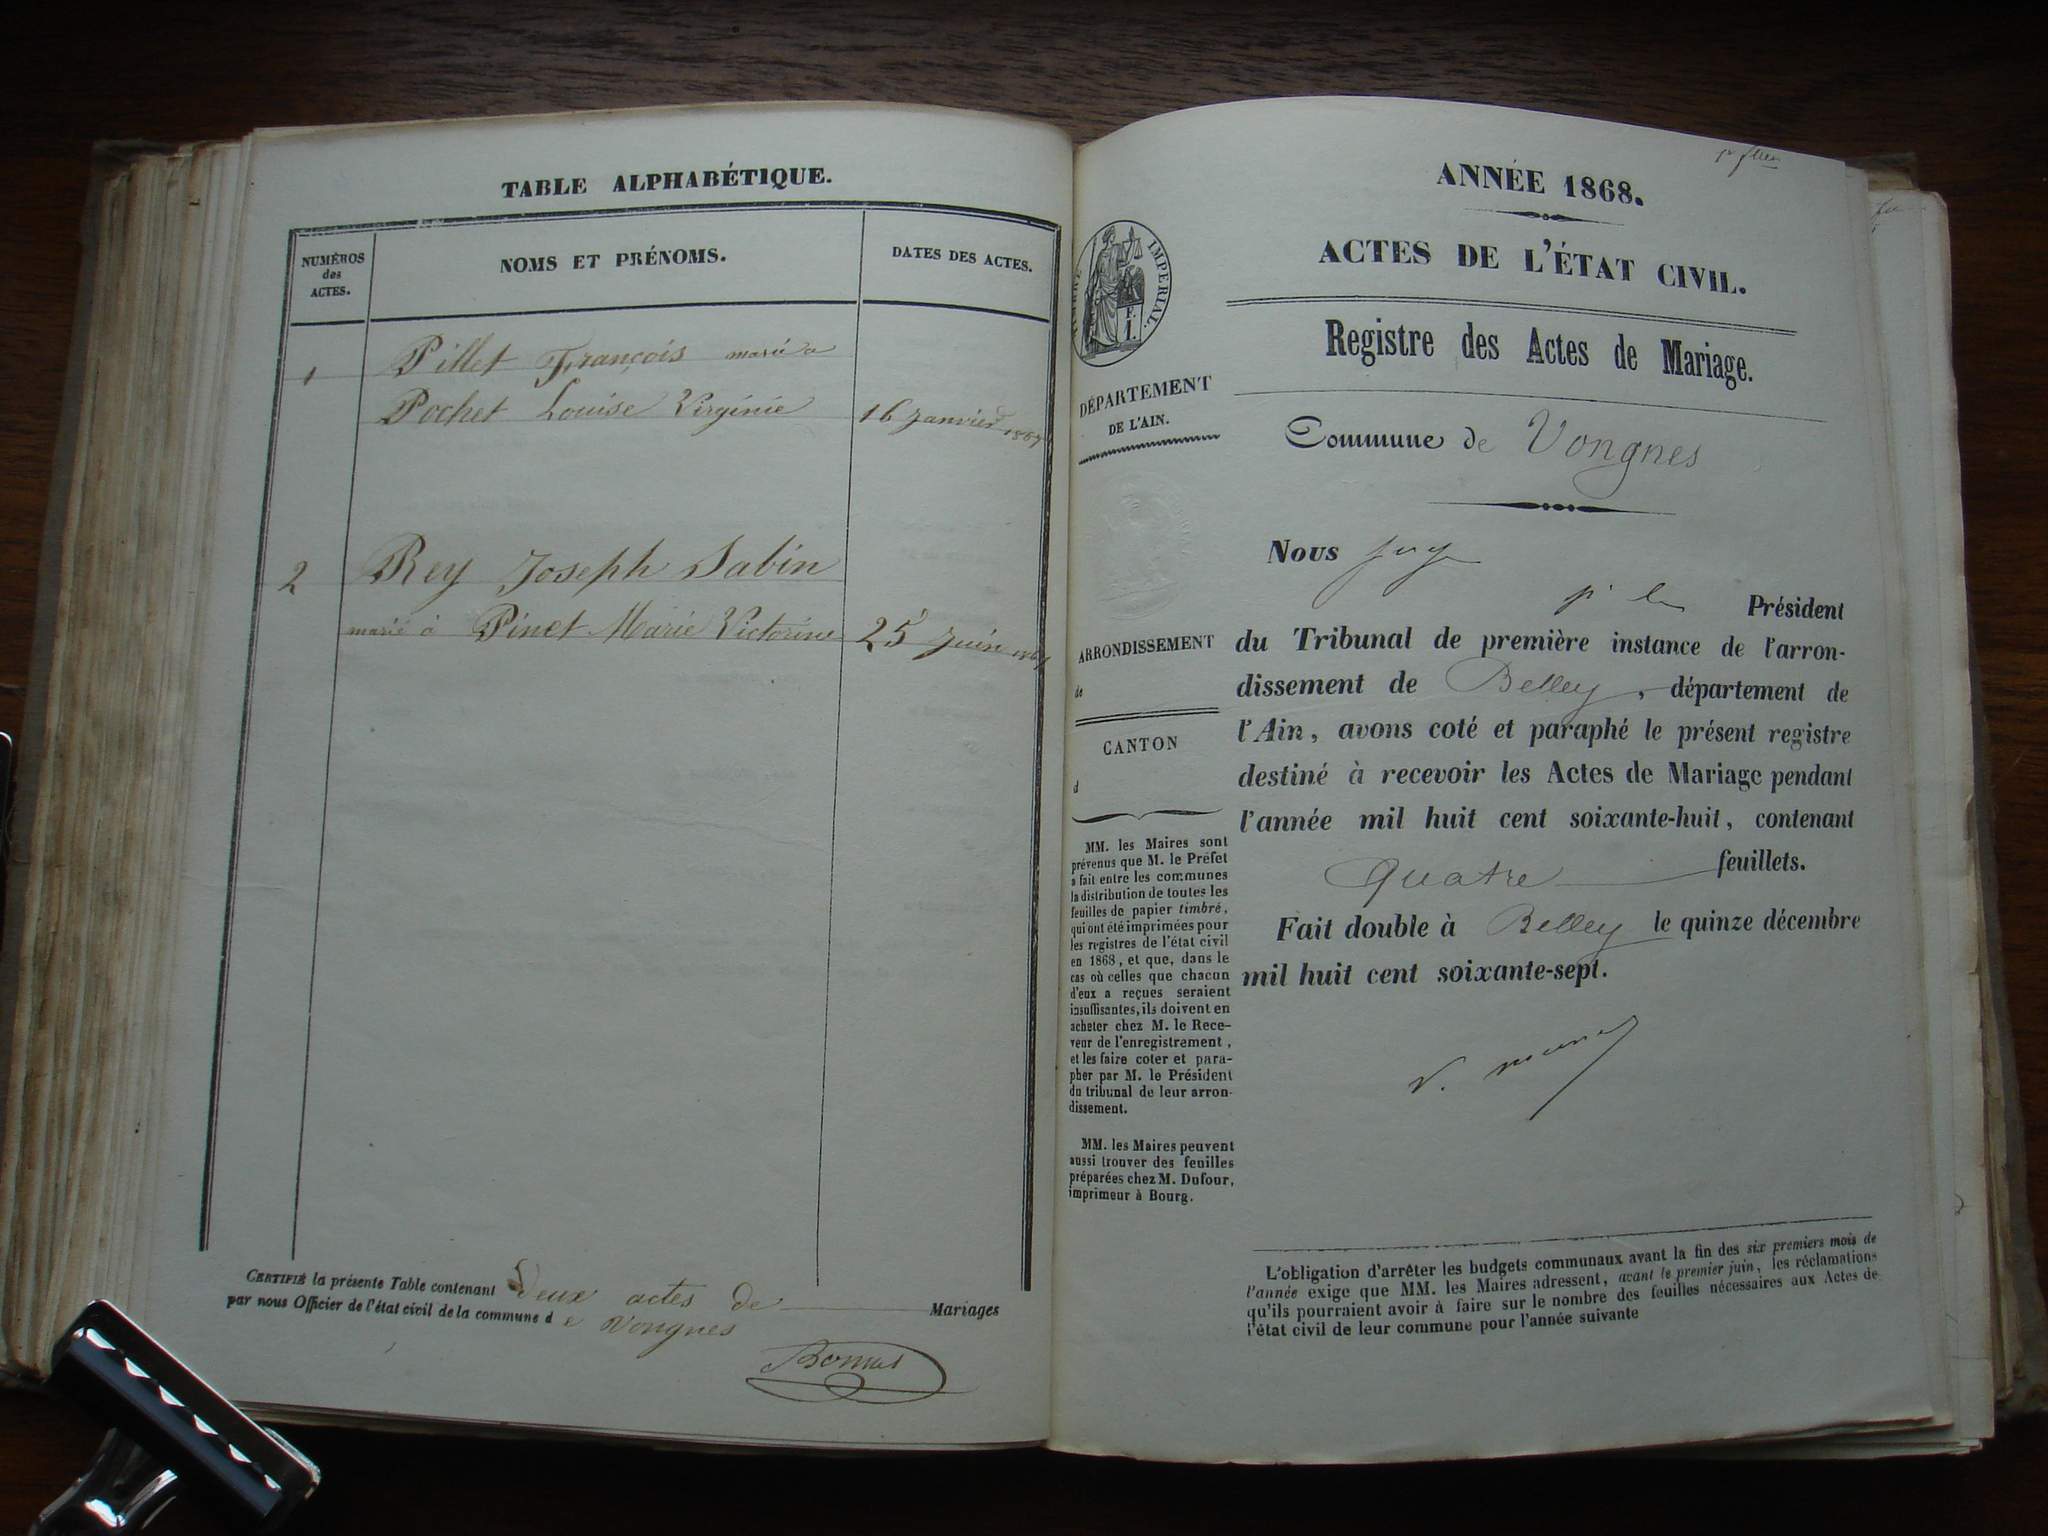 TABLE ALPHABÉTIQUE.
NUMÉROS
des
ACTES.
NOMS ET PRÉNOMS.
DATES DES ACTES.
1
Pillet François marié a
Pochet Louise Virginie
16 Janvier 1867
2
Rey Joseph Sabin
marié à Pinet Marie Victorine
25 Juin 1867
CERTIFIÉ la présente Table contenant Deux actes de Mariages
par nous Officier de l'état civil de la commune de Vongnes
ANNÉE 1868.
ACTES DE L'ÉTAT CIVIL.
Registre des Actes de Mariage.
Commune de Vongnes
TIMBRE IMPERIAL.
F.
1.
DÉPARTEMENT
DE L'AIN.
ARRONDISSEMENT
de
CANTON
d
MM. les Maires sont
prévenus que M. le Préfet
a fait entre les communes
la distribution de toutes les
feuilles de papier timbré,
qui ont été imprimées pour
les registres de l'état civil
en 1868, et que, dans le
cas où celles que chacun
d'eux a reçues seraient
insuffisantes, ils doivent en
acheter chez M. le Rece-
veur de l'enregistrement,
et les faire coter et para-
pher par M. le Président
du tribunal de leur arron-
dissement.
MM. les Maires peuvent
aussi trouver des feuilles
préparées chez M. Dufour,
imprimeur à Bourg.
Nous
Président
du Tribunal de première instance de l'arron-
dissement de Belley, département de
l'Ain, avons coté et paraphé le présent registre
destiné à recevoir les Actes de Mariage pendant
l'année mil huit cent soixante-huit, contenant
Quatre feuillets.
Fait double à Belley le quinze décembre
mil huit cent soixante-sept.
L'obligation d'arrêter les budgets communaux avant la fin des six premiers mois de
l'année exige que MM. les Maires adressent, avant le premier juin, les réclamations
qu'ils pourraient avoir à faire sur le nombre des feuilles nécessaires aux Actes de
l'état civil de leur commune pour l'année suivante